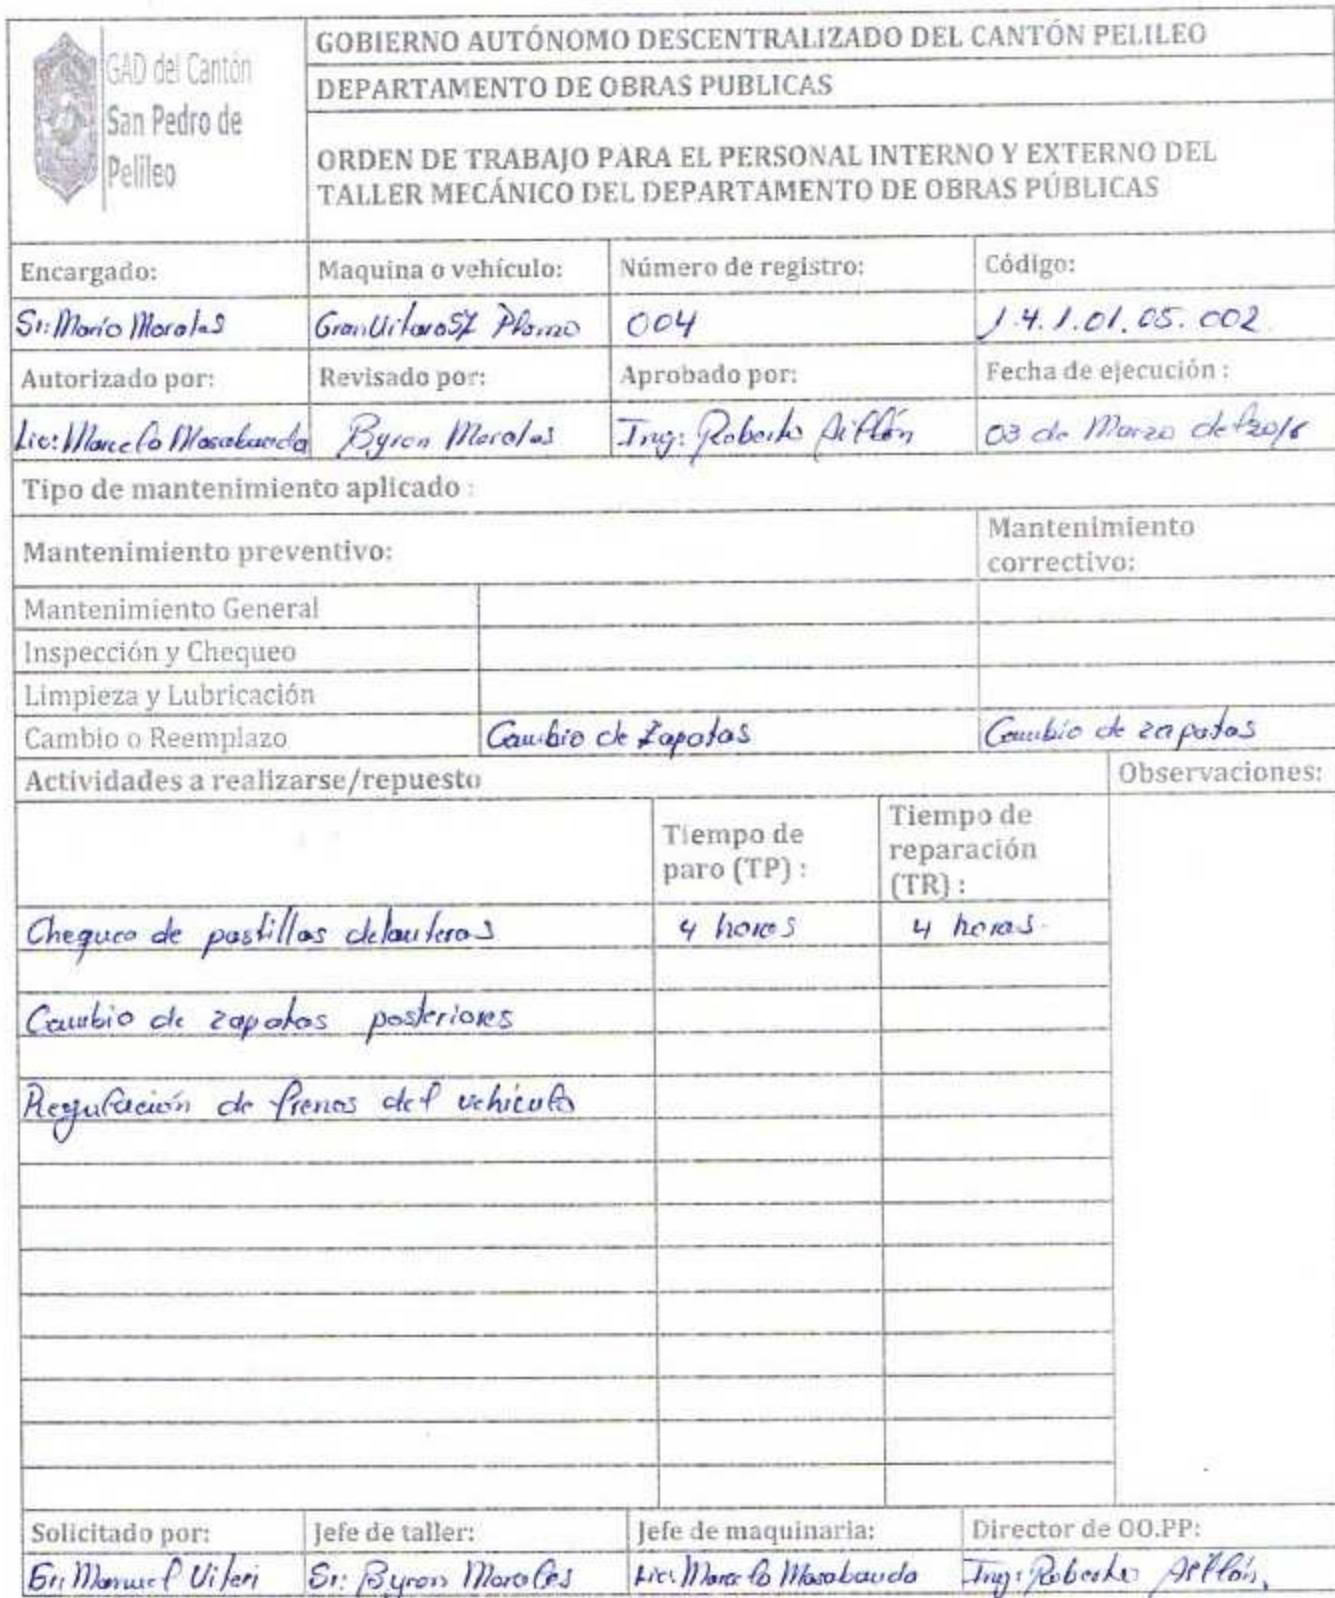 GAD del Cantón
San Pedro de
Pelileo
GOBIERNO AUTÓNOMO DESCENTRALIZADO DEL CANTÓN PELILEO
DEPARTAMENTO DE OBRAS PUBLICAS
ORDEN DE TRABAJO PARA EL PERSONAL INTERNO Y EXTERNO DEL
TALLER MECÁNICO DEL DEPARTAMENTO DE OBRAS PÚBLICAS
Encargado: Maquina o vehículo: Número de registro: Código:
Sr: Mario Morales Gran Vitara SZ Plomo 004 1.4.1.01.05.002
Autorizado por: Revisado por: Aprobado por: Fecha de ejecución :
Lic: Marcelo Masabanda Byron Morales Ing: Roberto 03 de Marzo del
Tipo de mantenimiento aplicado :
Mantenimiento preventivo: Mantenimiento
correctivo:
Mantenimiento General
Inspección y Chequeo
Limpieza y Lubricación
Cambio o Reemplazo Cambio de Zapatas Cambio de zapatas
Actividades a realizarse/repuesto Observaciones:
Tiempo de
paro (TP) :
Tiempo de
reparación
(TR) :
Chequeo de pastillas delanteras 4 horas 4 horas.
Cambio de zapatas posteriores
Regulación de frenos del vehiculo
Solicitado por: Jefe de taller: Jefe de maquinaria: Director de OO.PP:
Sr: Manuel Viteri Sr: Byron Morales Lic: Marcelo Masabanda Ing: Roberto